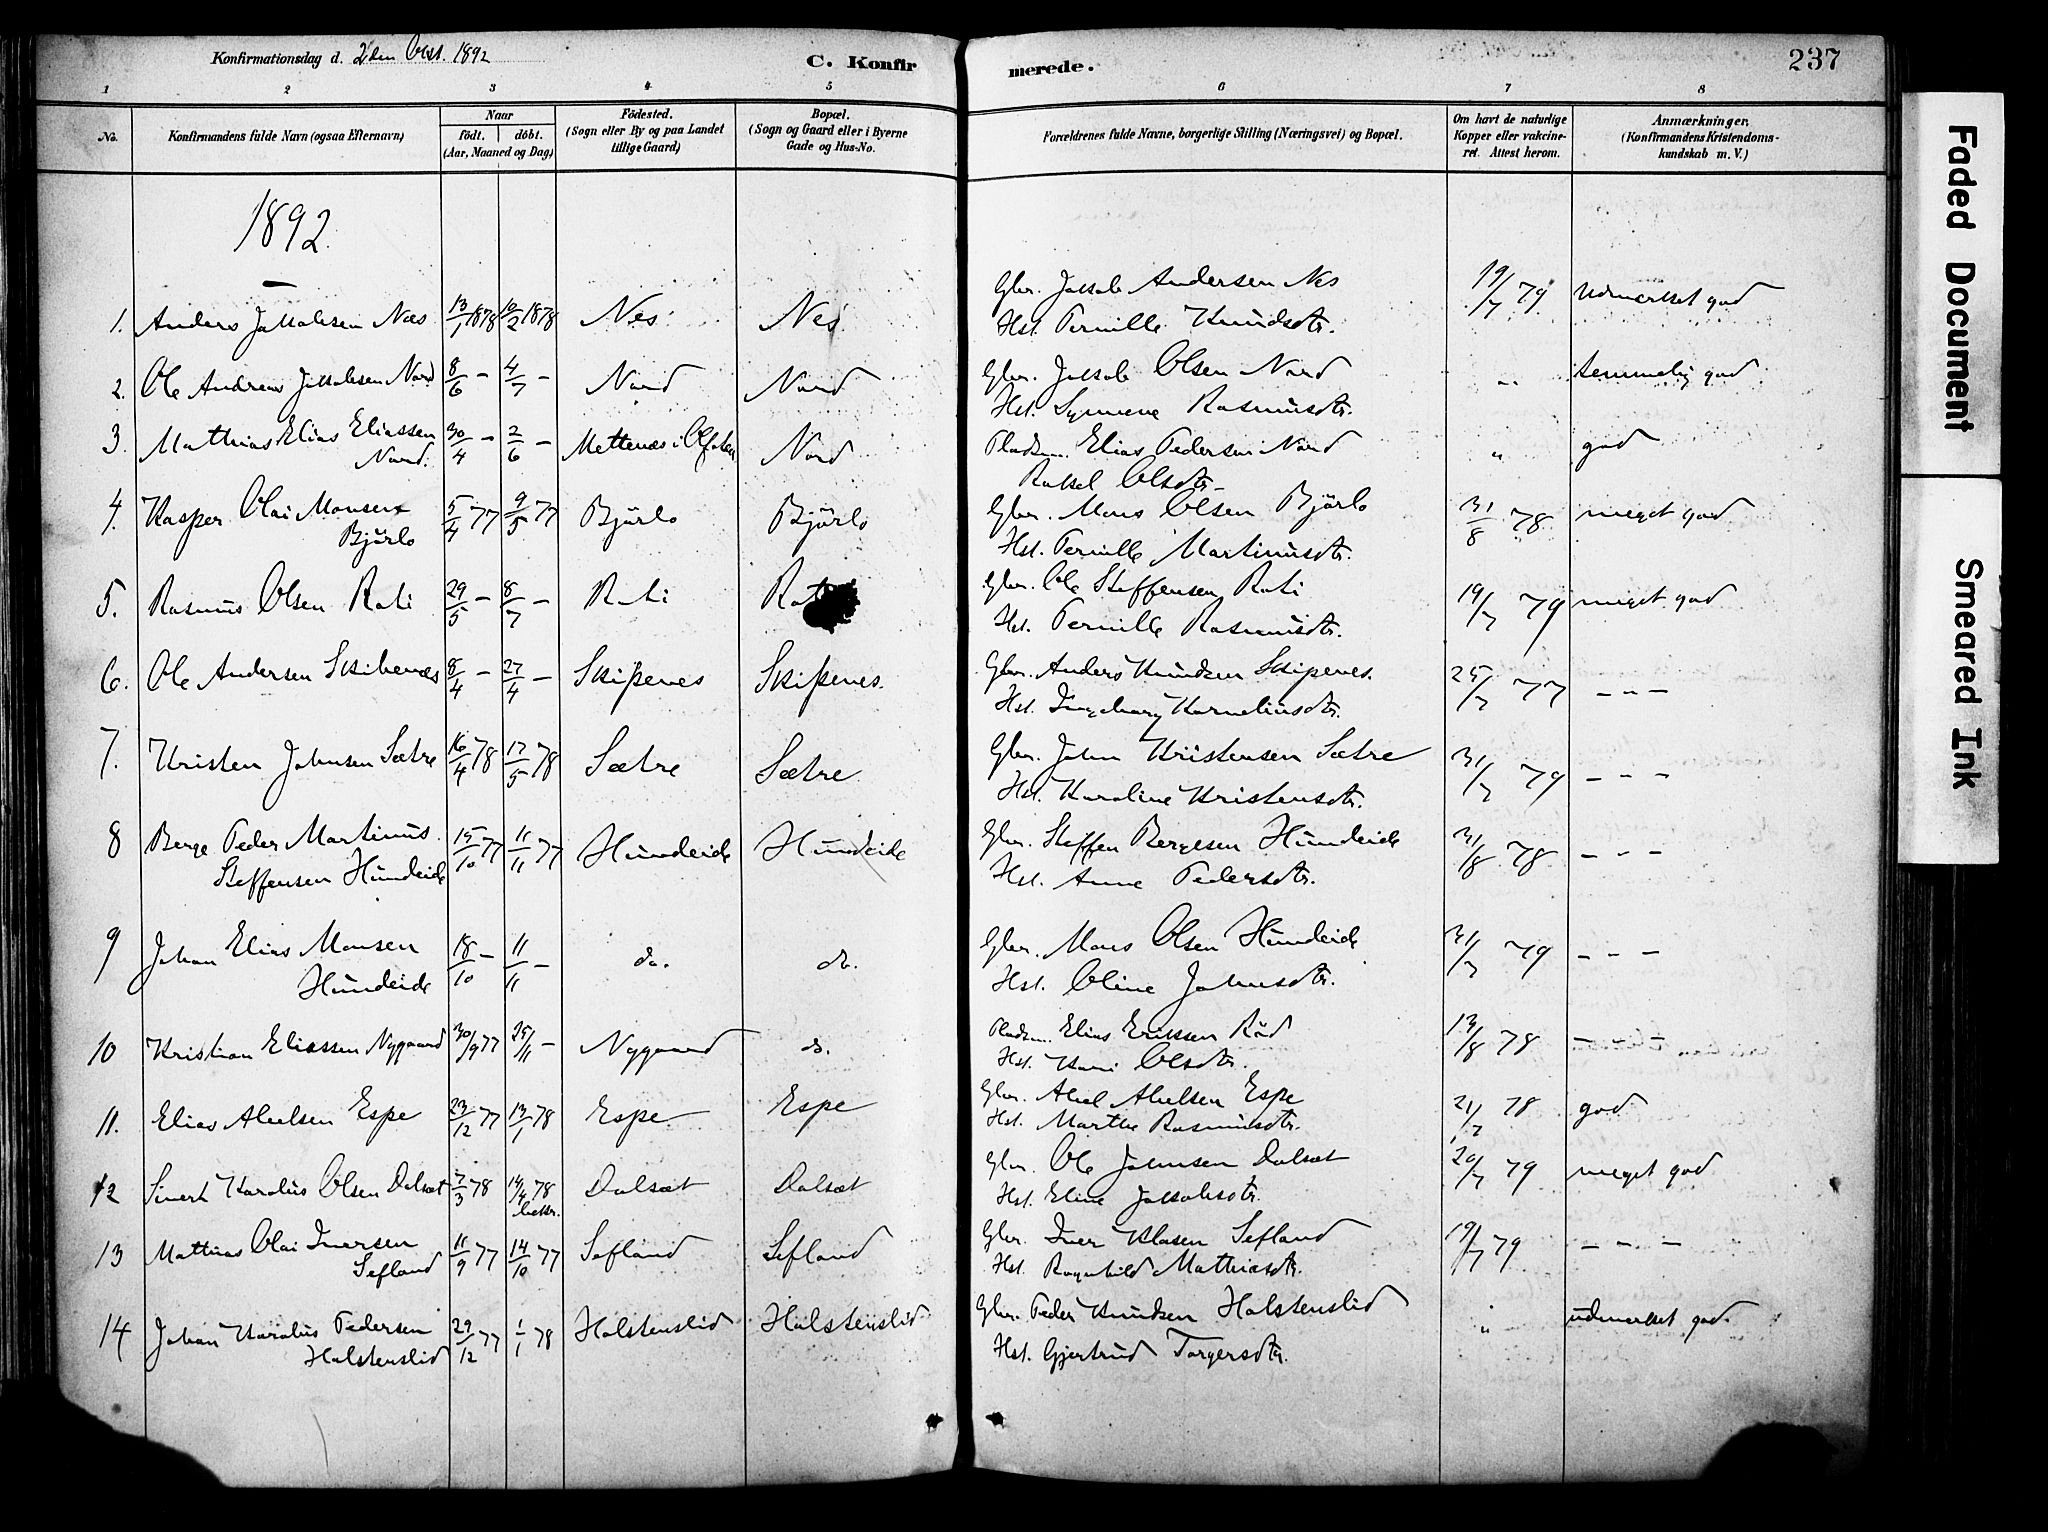 Konfirmationsdag d. 2den Okt. 1892
C. Konfirmerede.
237
1 2 3 4 5 6 7 8
No.
Konfirmandens fulde Navn (ogsaa Efternavn)
Naar
födt. döbt.
(Aar, Maaned og Dag)
Födested.
(Sogn eller By og paa Landet
tillige Gaard)
Bopæl.
(Sogn og Gaard eller i Byerne
Gade og Hus-No.
Forældrenes fulde Navne, borgerlige Stilling (Næringsvei) og Bopæl.
Om havt de naturlige
Kopper eller vakcine-
ret. Attest herom.
Anmærkninger,
(Konfirmandens Kristendoms-
kundskab m. V.)
1892
1. Anders Jakobsen Næs 13/1 1878 10/2 1878 Nes Nes Gbr. Jakob Andersen Nes 19/7 79 Udmerket god
Hst. Pernille Knudsdtr.
2. Ole Andreas Jakobsen Nord 8/6 - 4/7 - Nord Nord Gbr. Jakob Olsen Nord " temmelig god
Hst. Synneve Rasmusdtr.
3. Mathias Elias Eliassen 30/4 - 2/6 - Mettenæs i Nord Pladsm. Elias Pedersen Nord " god
Nord. Rakel Olsdtr
4. Kasper Olai Monsen 5/4 77 9/5 77 Bjørlo Bjørlo Gbr. Mons Olsen Bjørlo 31/8 78 meget god
Bjørlo Hst. Pernille Martinusdtr.
5. Rasmus Olsen Roti 29/5 - 8/7 - Roti Gbr. Ole Steffensen Roti 19/7 79 meget god
Hst. Pernille Rasmusdtr.
6. Ole Andersen Skibenæs 8/4 - 27/4 - Skipenes Skipenes. Gbr. Anders Knudsen Skipenes. 25/7 77 - " -
Hst. Ingeborg Korneliusdtr.
7. Kristen Johnsen Sætre 16/4 78 17/5 78 Sætre Sætre Gbr. John Kristensen Sætre 31/7 79 - " -
Hst. Karoline Kristensdtr.
8 Berge Peder Martinus 15/10 77 11/11 77 Hundeide Hundeide Gbr. Steffen Bergesen Hundeide 31/8 78 - " -
Steffensen Hundeide Hst. Anne Pedersdtr.
9 Johan Elias Monsen 18/10 - 11/11 - do. do. Gbr. Mons Olsen Hundeide 31/7 79 - " -
Hundeide Hst. Oline Johnsdtr.
10 Kristian Eliassen Nygaard 30/9 77 25/11 - Nygaard do. Pladsm. Elias Erikssen Röd 13/8 78 - " -
Hst. Kari Olsdtr.
11. Elias Abelsen Espe 23/12 77 13/1 78 Espe Espe Gbr. Abel Abelsen Espe 21/7 78 god
Hst. Marthe Rasmusdtr.
12 Sivert Karolus Olsen Dalsæt 7/3 78 78 Dalsæt Dalsæt Gbr. Ole Johnsen Dalsæt 20/7 79 meget god
Hst. Eline Jakobsdtr.
13 Mathias Olai Iversen 11/9 77 14/10 77 Sefland Sefland Gbr. Iver Klasen Sefland 19/7 79 - " -
Sefland Hst. Ragnhild Mathiasdtr.
14 Johan Karolus Pedersen 29/12 77 1/1 78 Holstenslid Holstenslid Gbr. Peder Knudsen Holstenslid " udmerket god.
Holstenslid Hst. Gjertrud Torgersdtr.
Faded Document
Smeared Ink